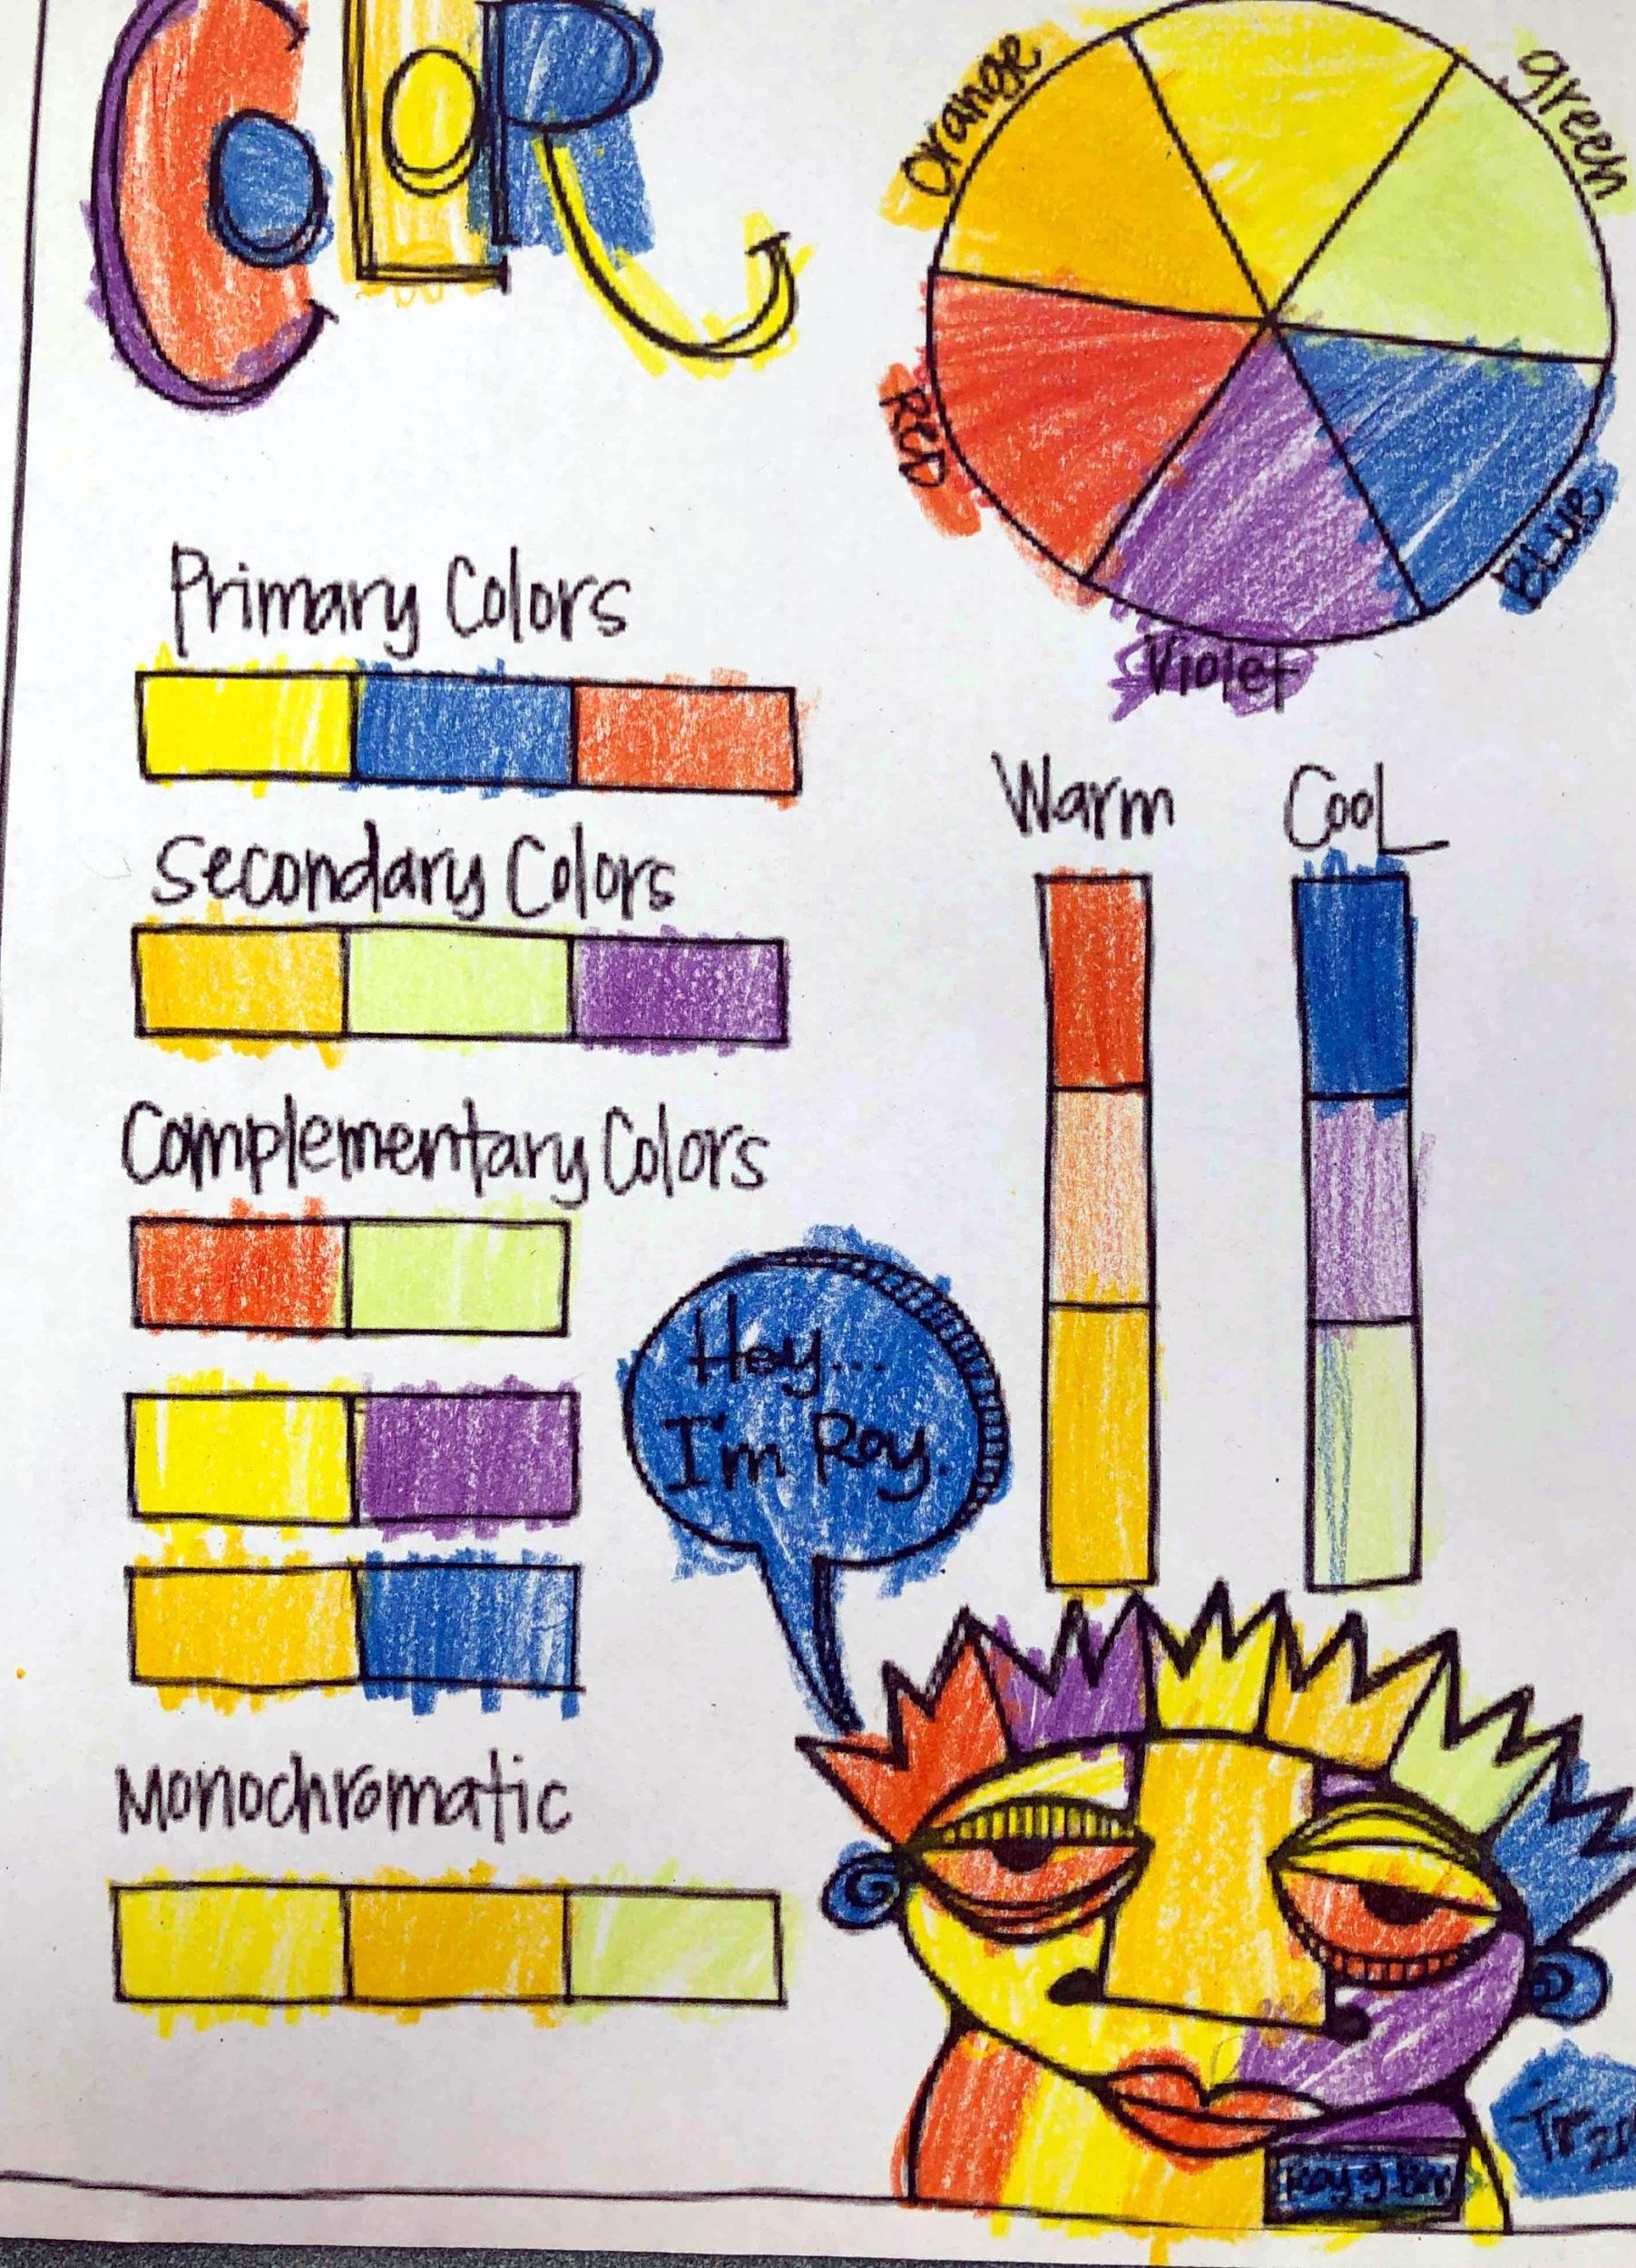 Color
orange
green
RED
BLUE
Violet
Primary Colors
Secondary Colors
Complementary Colors
Monochromatic
Warm
Cool
Hey...
I'm Roy.